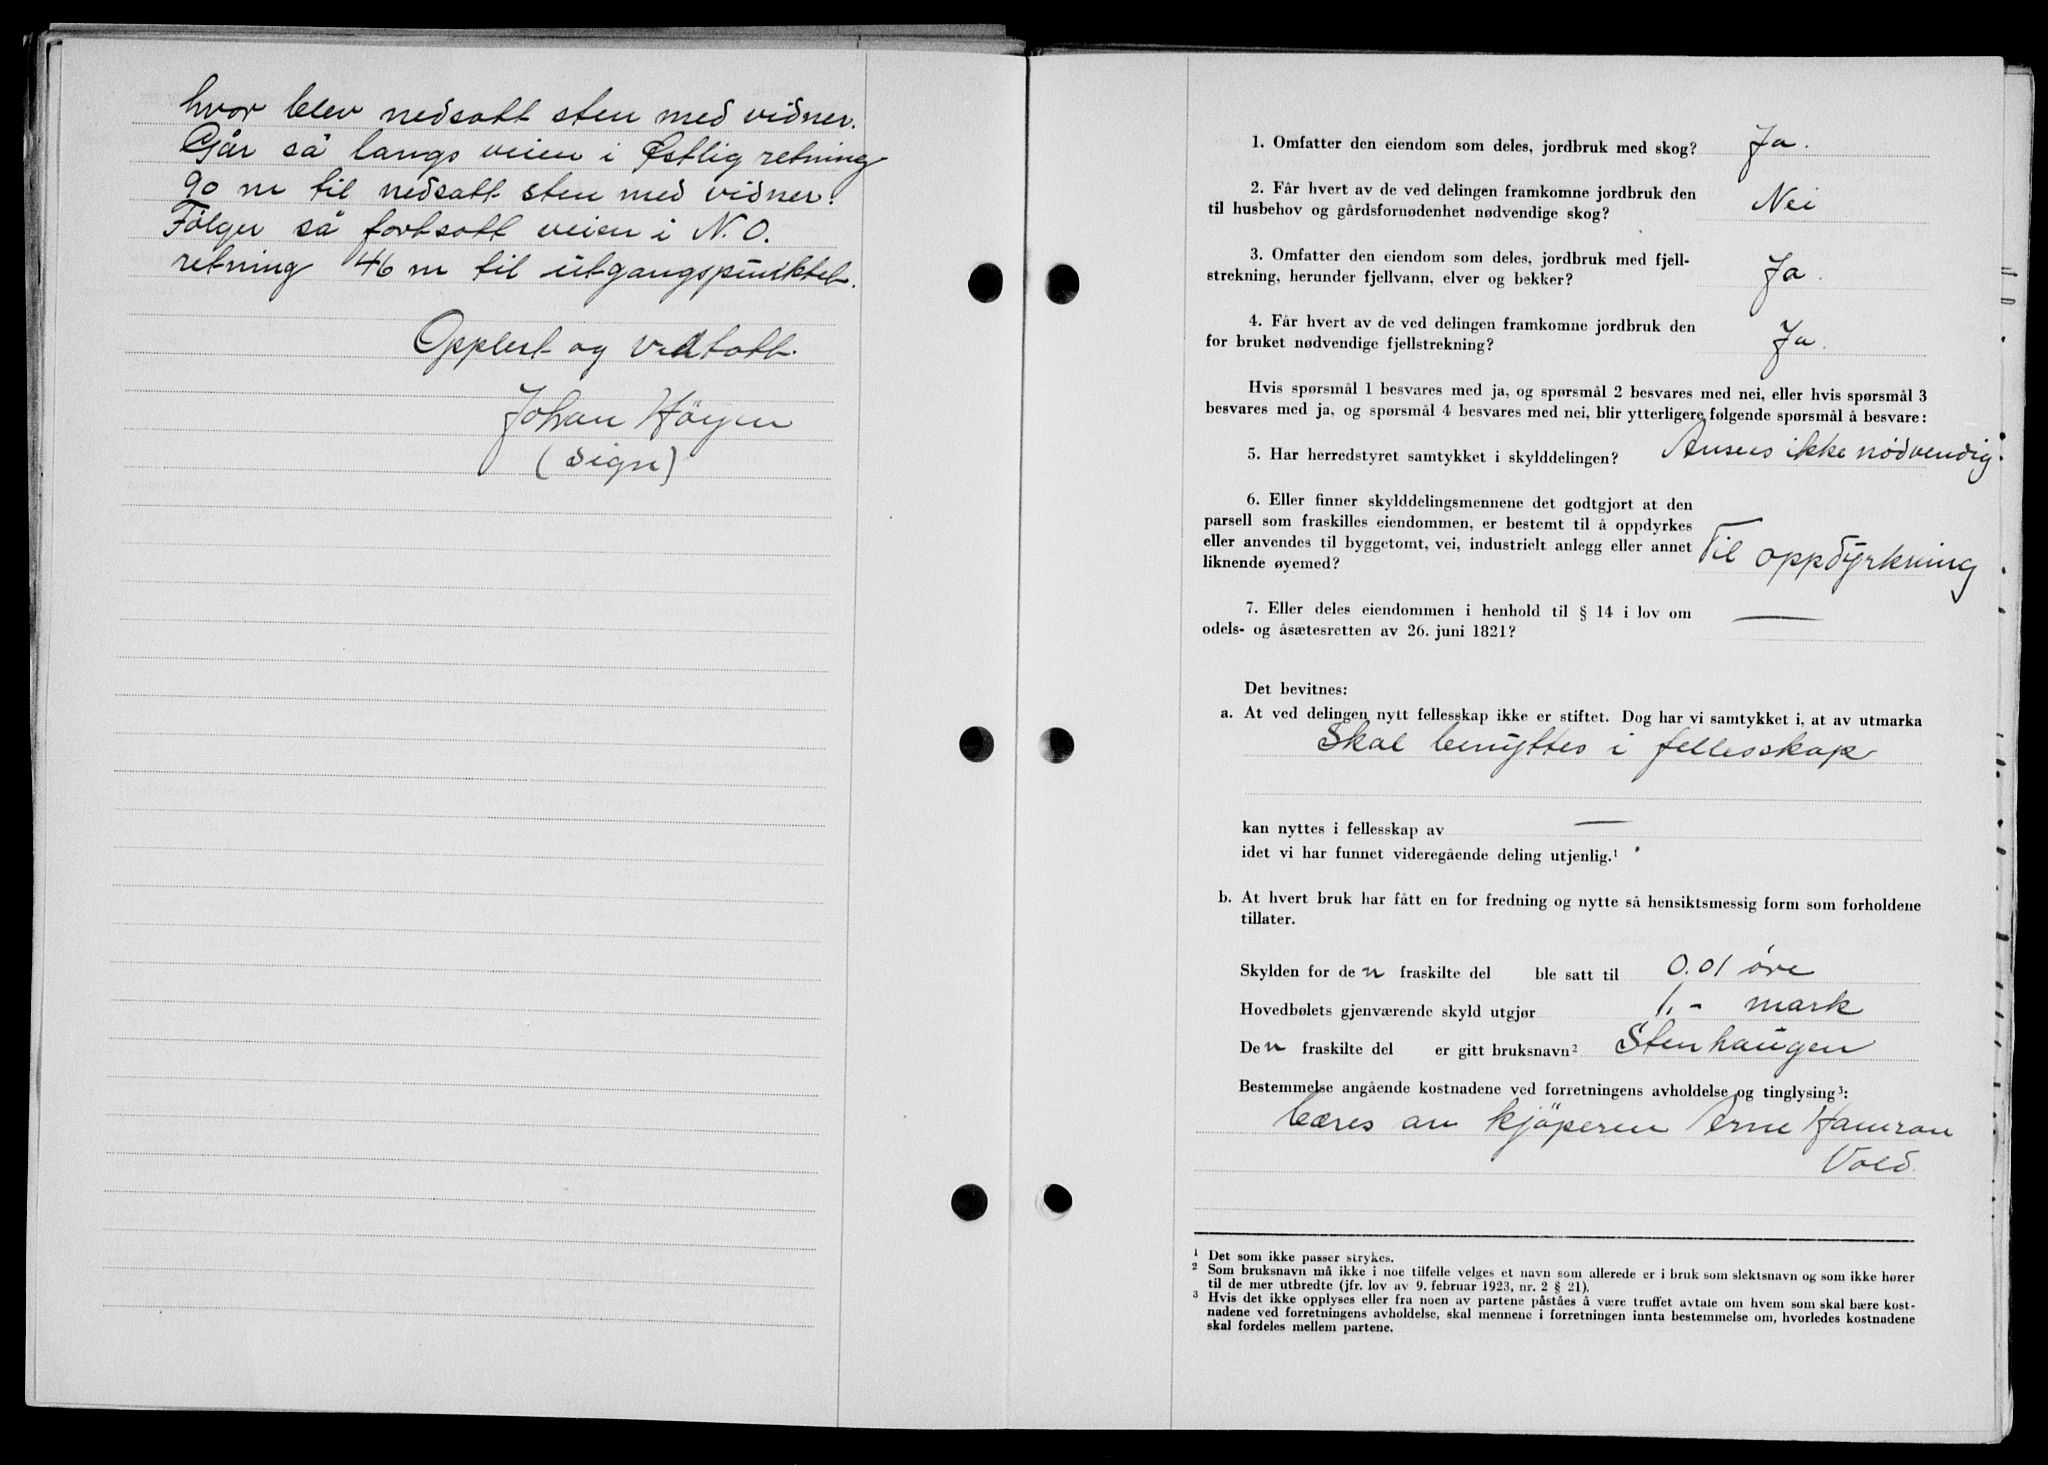 hvor blev nedsatt sten med vidner.
Går så langs veien i Østlig retning
90 m til nedsatt sten med vidner.
Følger så fortsatt veien i N.O.
retning 46 m til utgangspunktet.
Opplest og vedtatt.
Johan Höyen
(sign)
1. Omfatter den eiendom som deles, jordbruk med skog? Ja.
2. Får hvert av de ved delingen framkomne jordbruk den
til husbehov og gårdsfornødenhet nødvendige skog? Nei
3. Omfatter den eiendom som deles, jordbruk med fjell-
strekning, herunder fjellvann, elver og bekker? Ja.
4. Får hvert av de ved delingen framkomne jordbruk den
for bruket nødvendige fjellstrekning? Ja.
Hvis spørsmål 1 besvares med ja, og spørsmål 2 besvares med nei, eller hvis spørsmål 3
besvares med ja, og spørsmål 4 besvares med nei, blir ytterligere følgende spørsmål å besvare:
5. Har herredstyret samtykket i skylddelingen? Ansees ikke nødvendig.
6. Eller finner skylddelingsmennene det godtgjort at den
parsell som fraskilles eiendommen, er bestemt til å oppdyrkes
eller anvendes til byggetomt, vei, industrielt anlegg eller annet
liknende øyemed? Til oppdyrkning
7. Eller deles eiendommen i henhold til § 14 i lov om
odels- og åsætesretten av 26. juni 1821? —
Det bevitnes:
a. At ved delingen nytt fellesskap ikke er stiftet. Dog har vi samtykket i, at av utmarka
Skal benyttes i fellesskap
kan nyttes i fellesskap av —
idet vi har funnet videregående deling utjenlig.¹
b. At hvert bruk har fått en for fredning og nytte så hensiktsmessig form som forholdene
tillater.
Skylden for den fraskilte del ble satt til 0.01 øre
Hovedbølets gjenværende skyld utgjør 1.- mark
Den fraskilte del er gitt bruksnavn² Stenhaugen
Bestemmelse angående kostnadene ved forretningens avholdelse og tinglysing³:
bæres av kjöperen Arne
Vold.
¹ Det som ikke passer strykes.
² Som bruksnavn må ikke i noe tilfelle velges et navn som allerede er i bruk som slektsnavn og som ikke hører
til de mer utbredte (jfr. lov av 9. februar 1923, nr. 2 § 21).
³ Hvis det ikke opplyses eller fra noen av partene påståes å være truffet avtale om hvem som skal bære kost-
nadene ved forretningens avholdelse, skal mennene i forretningen innta bestemmelse om, hvorledes kostnadene
skal fordeles mellem partene.